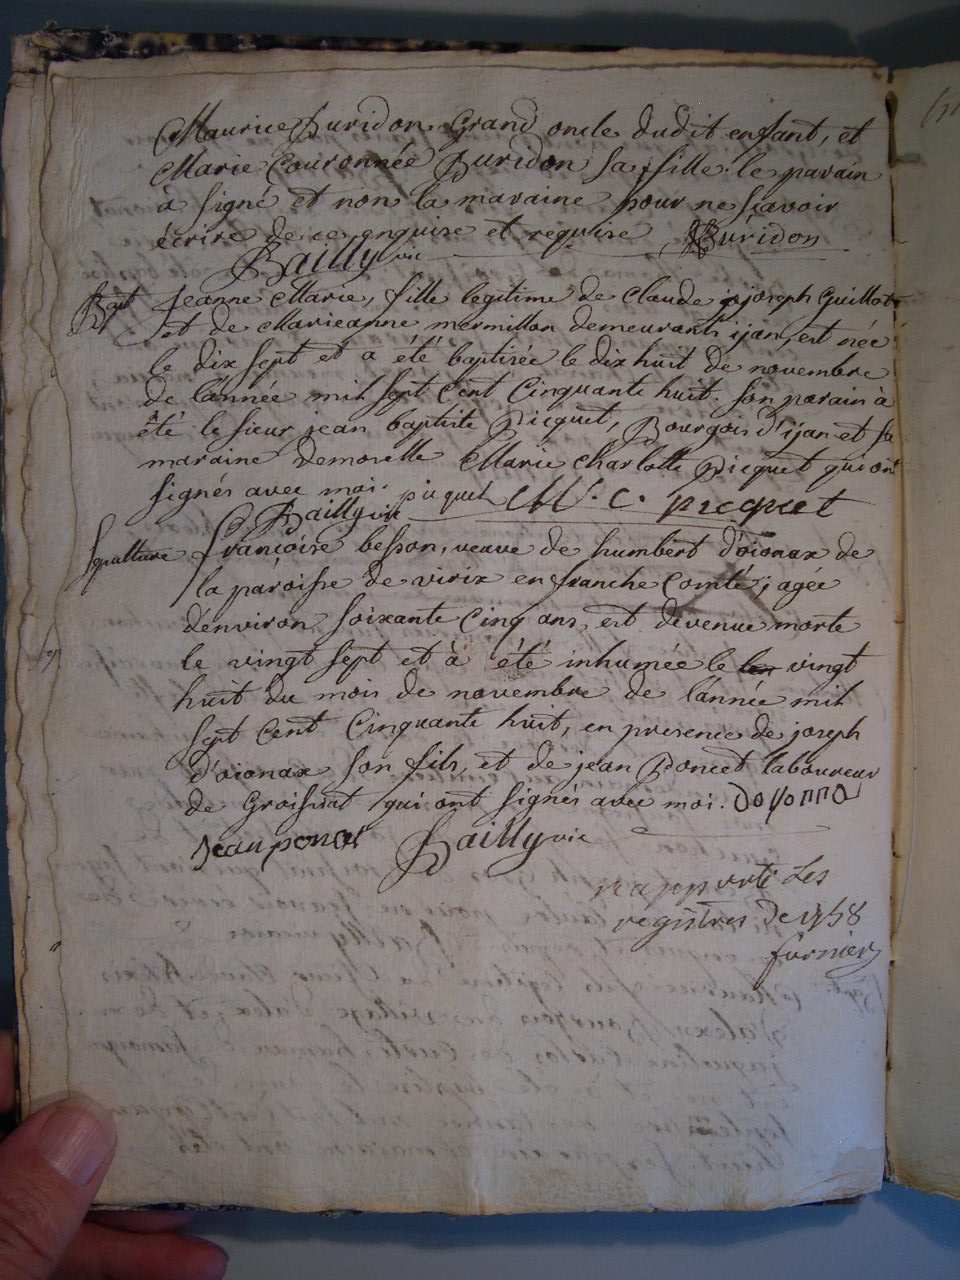 Maurice Buridon Grand oncle dudit enfant, et
Marie Couronnée Buridon sa fille: le parain
à signé et non la maraine pour ne scavoir
écrire de ce enquise et requise Buridon
Bailly vic
Bapt Jeanne Marie, fille legitime de Claude joseph Guillot
et de Marieanne mermillon demeurants ijan, est née
le dix sept et a été baptisée le dix huit de novembre
de l'année mil sept cent cinquante huit. son parain à
été le sieur jean baptiste Picquet, Bourgois d'ijan et sa
maraine demoselle Marie charlotte picquet qui ont
signés avec moi. picquet M. C. picquet
Bailly vic
Sepulture Françoise besson, veuve de humbert d'oionax de
la paroisse de virix en franche Comté, agée
d'environ soixante cinq ans, est devenue morte
le vingt sept et à été inhumée le vingt
huit du mois de novembre de l'année mil
sept cent cinquante huit, en presence de joseph
d'oionax son fils, et de jean Poncet laboureur
de Groissiat qui ont signés avec moi. Doyonna
Jean ponce Bailly vic
rapporté Les
registres de 1758
furnier